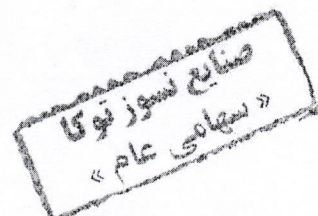 صنایع نسوز توکا
« سهامی عام »